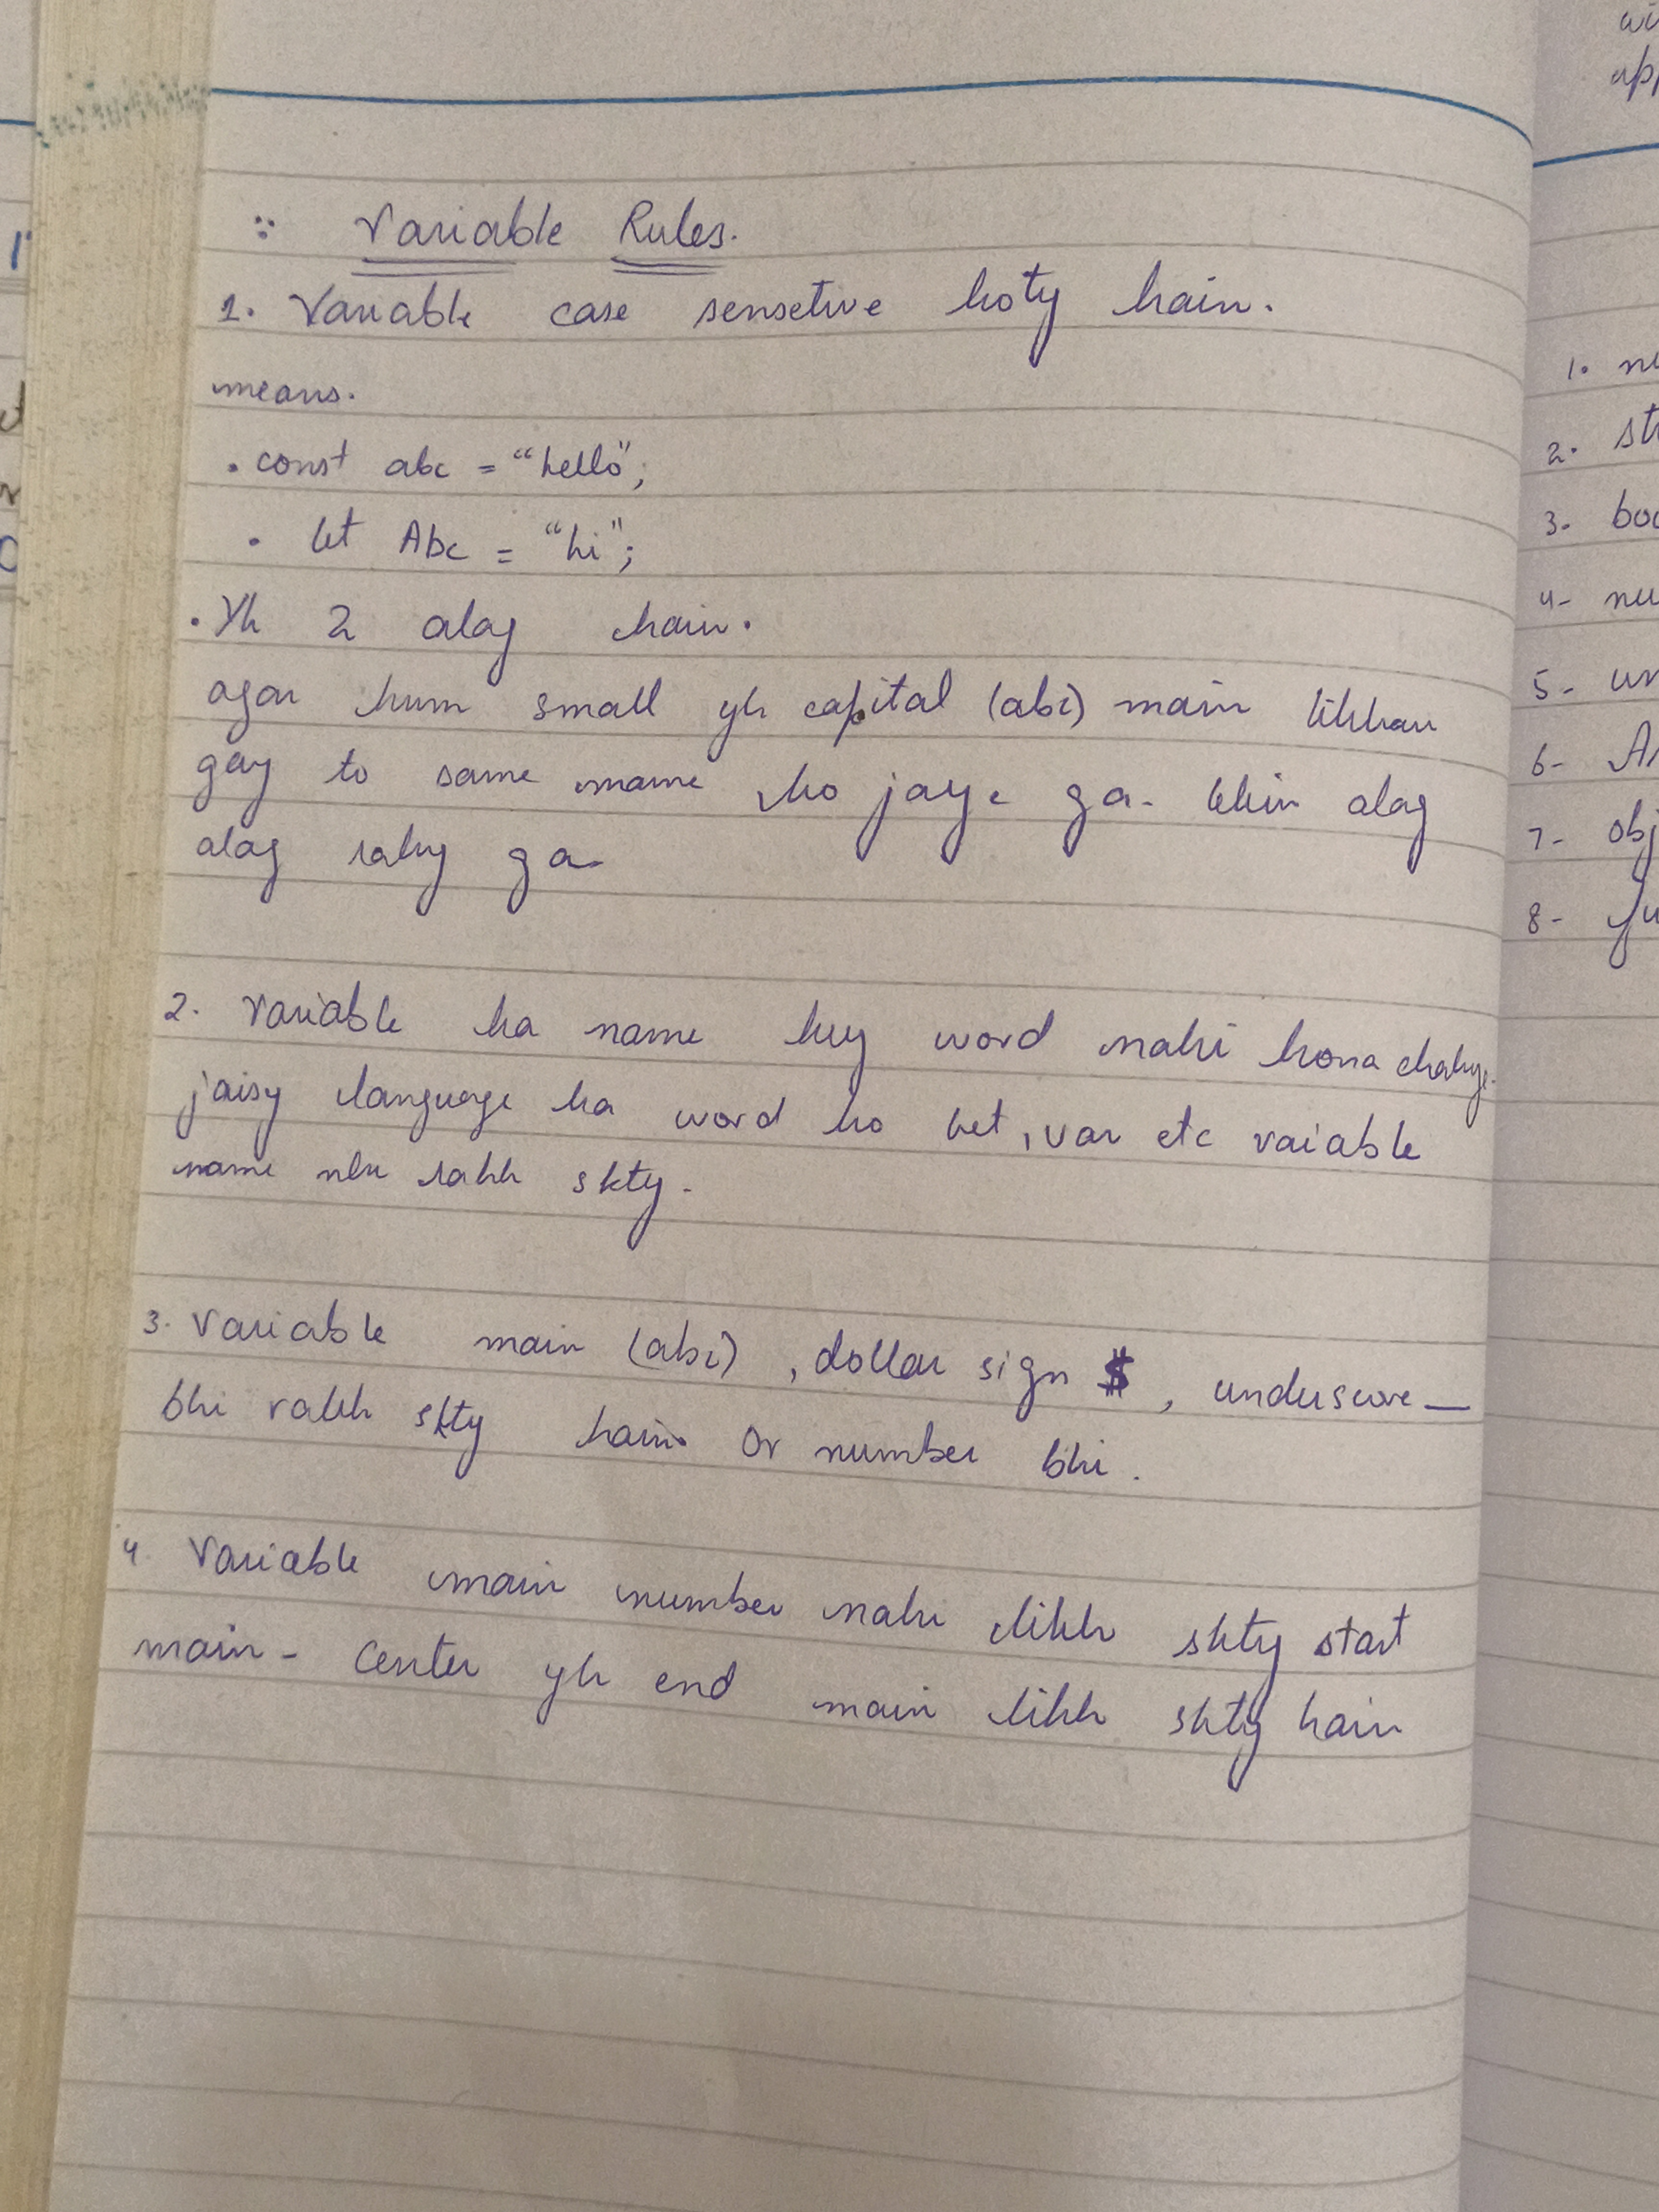 :: Variable Rules.
1. Variable case sensetive hoty hain.
means.
. const abc = "hello";
. let Abc = "hi";
. Yh 2 alag hain.
agar hum small yh capital (abc) main likhan
gay to same name ho jaye ga. lekin alag
alag rahy ga.
2. Variable ka name key word nahi hona chahye.
jaisy language ka word ho let, var etc vaiable
name nhi rakh skty.
3. Variable main (abc), dollar sign $, underscore _
bhi rakh skty hain. or number bhi.
4. Variable main number nahi likh skty start
main - Center yh end main likh skty hain
1.
2. st
3-
4- nu
5- un
6- A
7- obj
8- fu